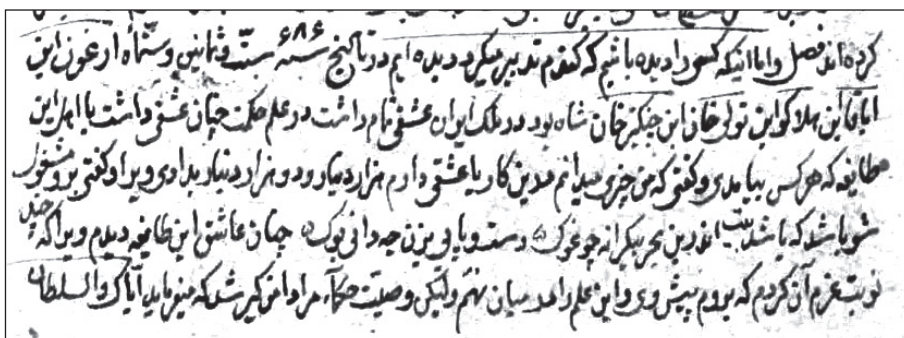 کرده‌اند فصل و اما اینکه کسی را دیده باشیم که کفتم تدبیر میکرد دیده‌ایم در تاریخ سنه ۶۸۶ ست و ثمانین و ستمأه ارغون ابن
اباقا ابن هلاکو ابن تولی خان ابن جنکیز خان شاه بود در ملک ایران عشقی تمام داشت در علم حکمت چنان عشقی داشت با اهل این
طایفه که هرکس بیامدی و کفتی که من چیزی میدانم مدین کار یا عشقی دارم هزار دینار و دو هزار دینار بدادی و یرا و کفتی برو مشغول
شو باشد که باشد بیت اندرین بحر بیکرانه چو غوک دست و پایی بزن چه دانی بوک چنان عاشق این طایفه دیدم ویرا که چند
نوبت عزم آن کردم که بروم پیش وی و این علم را در میان نهم ولیکن وصیت حکمآء مرا دامن کیر شد که میفرماید ایاک والسلطان